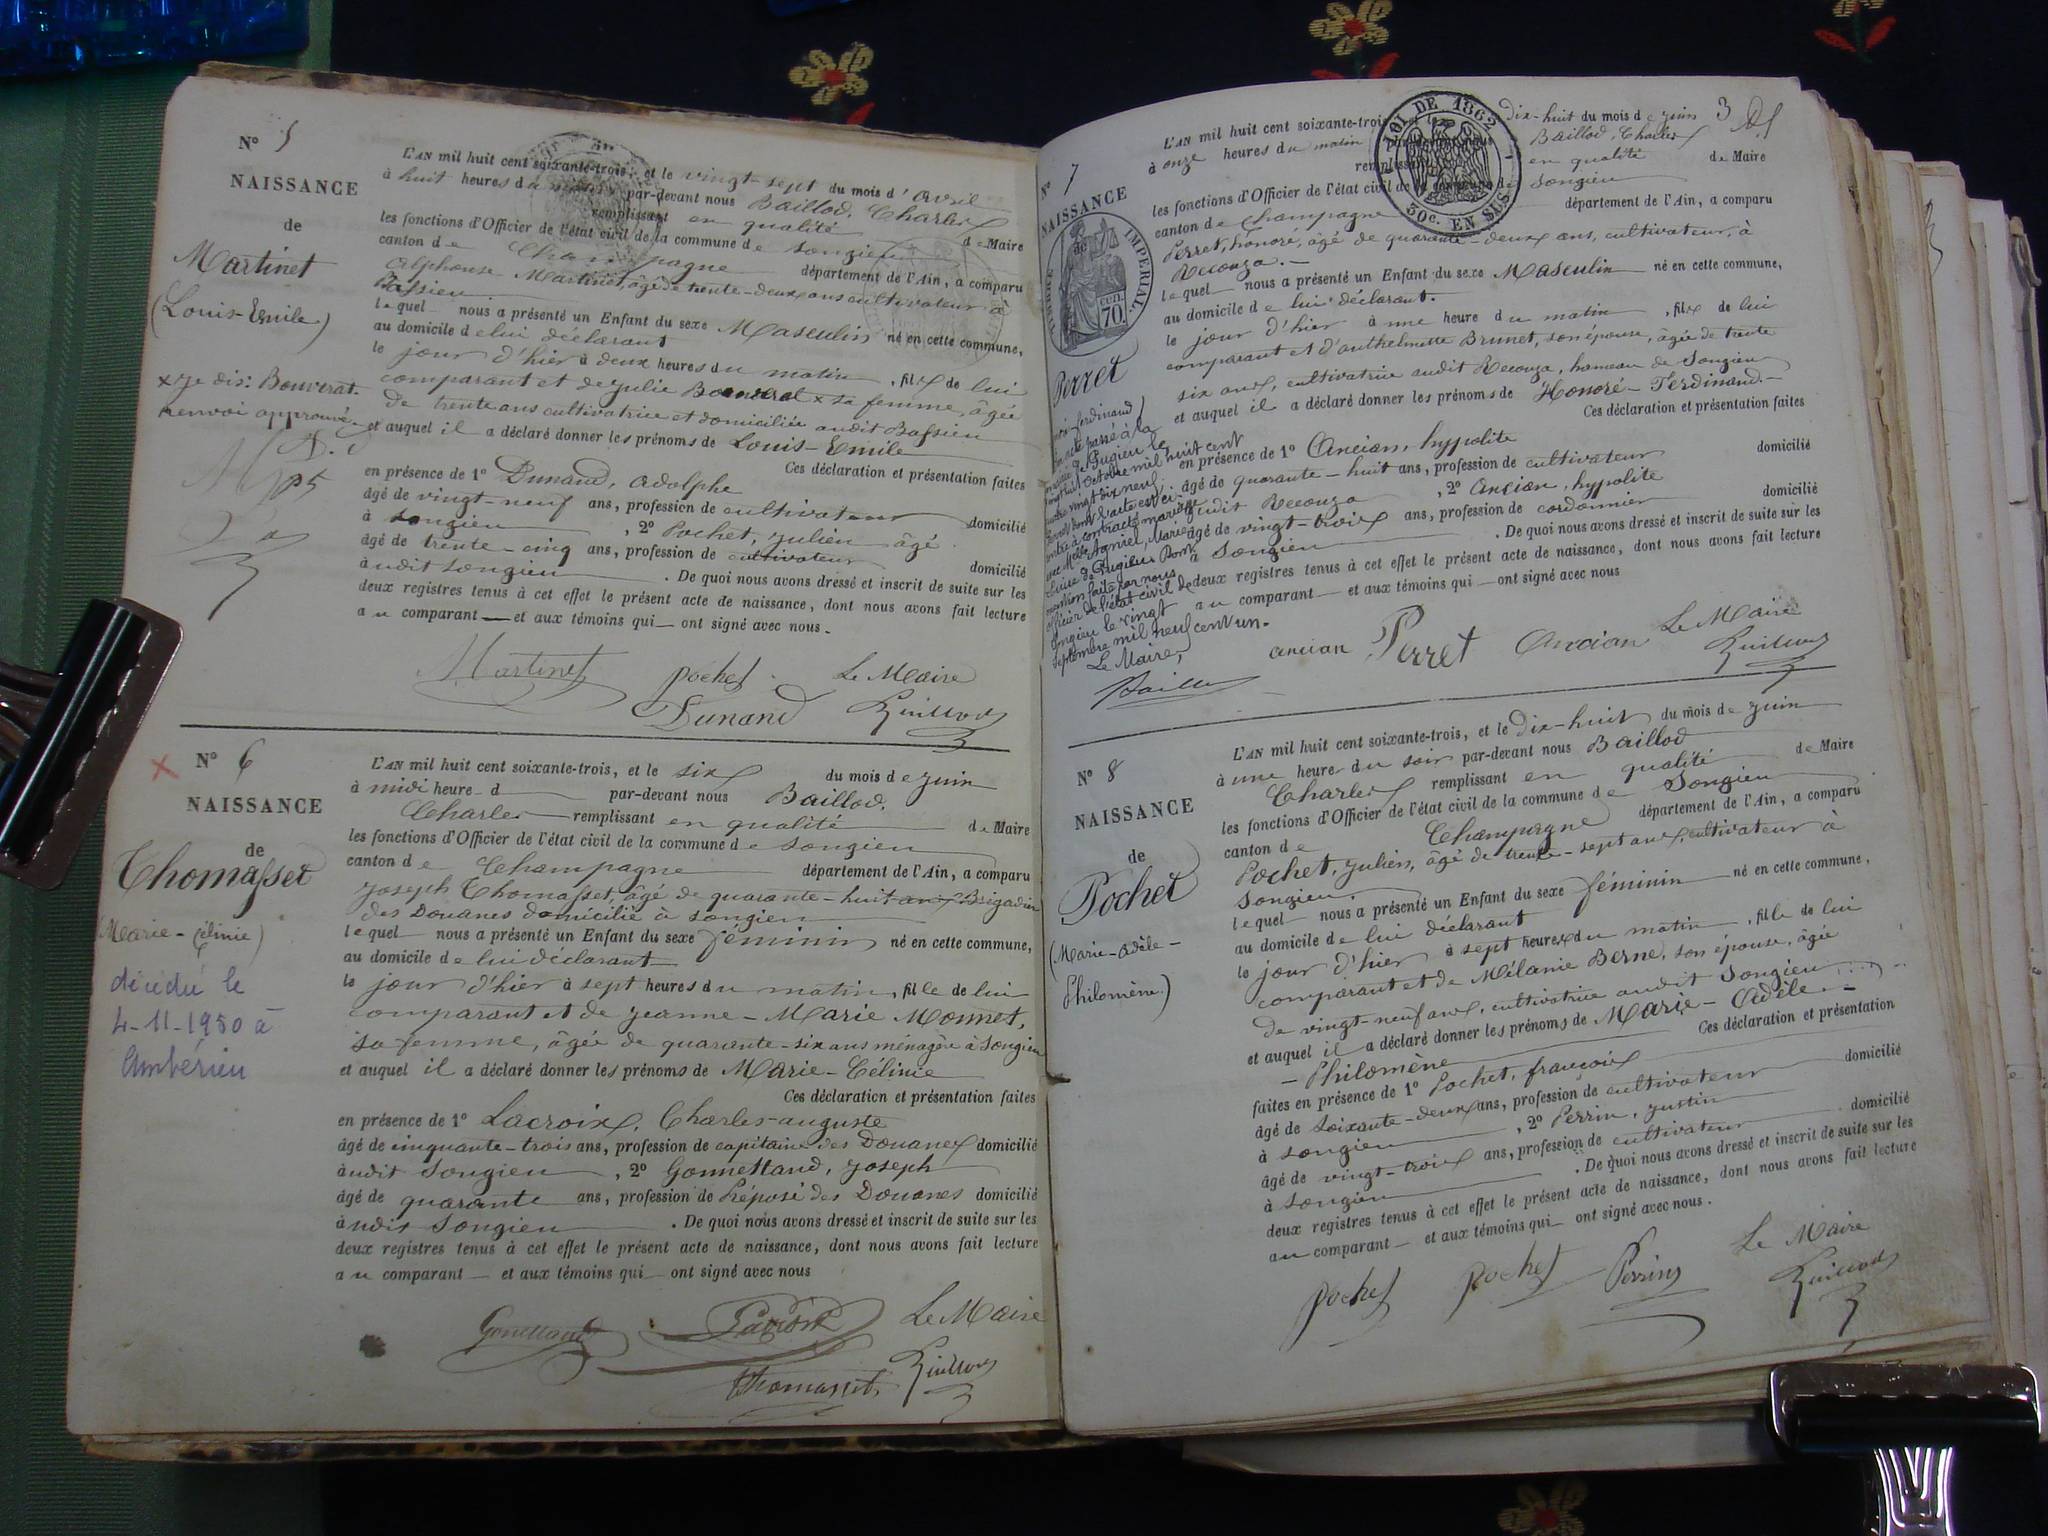 N° 5
NAISSANCE
de
Martinet
(Louis-Emile)
x Je dis: Bouvrat.
renvoi approuvé
L'AN mil huit cent soixante-trois, et le vingt-sept du mois d'avril
à huit heures du matin par-devant nous Baillod, Charles
remplissant en qualité de Maire
les fonctions d'Officier de l'état civil de la commune de Songieu
canton de Champagne département de l'Ain, a comparu
Alphonse Martinet, âgé de trente-deux ans cultivateur à
Bassieu
lequel nous a présenté un Enfant du sexe Masculin né en cette commune,
au domicile de lui déclarant
le jour d'hier à deux heures du matin, fils de lui
comparant et de Julie x sa femme, âgée
de trente ans cultivatrice et domiciliée audit Bassieu
et auquel il a déclaré donner les prénoms de Louis-Emile
Ces déclaration et présentation faites
en présence de 1° Dunand, Adolphe
âgé de vingt-neuf ans, profession de cultivateur domicilié
à Songieu, 2° Pochet, Julien âgé
âgé de trente-cinq ans, profession de cultivateur domicilié
audit Songieu. De quoi nous avons dressé et inscrit de suite sur les
deux registres tenus à cet effet le présent acte de naissance, dont nous avons fait lecture
au comparant et aux témoins qui ont signé avec nous.
Martinet Pochet Le Maire
Dunand
N° 6
NAISSANCE
de
Thomasset
(Marie-Célinie)
décédé le
4-11-1950 à
Ambérieu
L'AN mil huit cent soixante-trois, et le six du mois de juin
à midi heure d par-devant nous Baillod,
Charles remplissant en qualité de Maire
les fonctions d'Officier de l'état civil de la commune de Songieu
canton de Champagne département de l'Ain, a comparu
Joseph Thomasset, âgé de quarante-huit ans Brigadier
des Douanes domicilié à Songieu
lequel nous a présenté un Enfant du sexe féminin né en cette commune,
au domicile de lui déclarant
le jour d'hier à sept heures du matin, fille de lui
comparant et de Jeanne-Marie Monnet,
sa femme, âgée de quarante-six ans ménagère à Songieu
et auquel il a déclaré donner les prénoms de Marie-Célinie
Ces déclaration et présentation faites
en présence de 1° Lacroix, Charles-Auguste
âgé de cinquante-trois ans, profession de capitaine des Douanes domicilié
audit Songieu, 2° Gonnettand, Joseph
âgé de quarante ans, profession de Préposé des Douanes domicilié
audit Songieu. De quoi nous avons dressé et inscrit de suite sur les
deux registres tenus à cet effet le présent acte de naissance, dont nous avons fait lecture
au comparant et aux témoins qui ont signé avec nous
Lacroix Le Maire
Thomasset
3
N° 7
NAISSANCE
de
TIMBRE IMPERIAL
70
LOI DE 1862
50c. EN SUS
Perret
L'AN mil huit cent soixante-trois, et le dix-huit du mois de juin
à onze heures du matin par-devant nous Baillod, Charles
remplissant en qualité de Maire
les fonctions d'Officier de l'état civil de la commune de Songieu
canton de Champagne département de l'Ain, a comparu
Perret, honoré, âgé de quarante-deux ans, cultivateur, à
Recouza.
lequel nous a présenté un Enfant du sexe Masculin né en cette commune,
au domicile de lui déclarant.
le jour d'hier à une heure du matin, fils de lui
comparant et d'anthelmette Brunet, son épouse, âgée de trente
six ans, cultivatrice audit Recouza, hameau de Songieu
et auquel il a déclaré donner les prénoms de Honoré-Ferdinand.
Ces déclaration et présentation faites
en présence de 1° Ancian, hypolite
âgé de quarante-huit ans, profession de cultivateur domicilié
audit Recouza, 2° Ancian, hypolite
âgé de vingt-trois ans, profession de cordonnier domicilié
à Songieu. De quoi nous avons dressé et inscrit de suite sur les
deux registres tenus à cet effet le présent acte de naissance, dont nous avons fait lecture
au comparant et aux témoins qui ont signé avec nous
mention faite par nous
officier de l'état civil de
Songieu le vingt
septembre mil neuf cent un.
Le Maire,
ancian Perret Ancian Le Maire
N° 8
NAISSANCE
de
Pochet
(Marie-Adèle-
Philomène)
L'AN mil huit cent soixante-trois, et le dix-huit du mois de juin
à une heure du soir par-devant nous Baillod
Charles remplissant en qualité de Maire
les fonctions d'Officier de l'état civil de la commune de Songieu
canton de Champagne département de l'Ain, a comparu
Pochet, Julien, âgé de trente-sept ans, cultivateur à
Songieu.
lequel nous a présenté un Enfant du sexe féminin né en cette commune,
au domicile de lui déclarant
le jour d'hier à sept heures du matin, fille de lui
comparant et de Mélanie Berne, son épouse, âgée
de vingt-neuf ans, cultivatrice audit Songieu
et auquel il a déclaré donner les prénoms de Marie-Adèle-
-Philomène Ces déclaration et présentation
faites en présence de 1° Pochet, françois
âgé de soixante-deux ans, profession de cultivateur domicilié
à Songieu, 2° Perrin, Justin
âgé de vingt-trois ans, profession de cultivateur domicilié
à Songieu. De quoi nous avons dressé et inscrit de suite sur les
deux registres tenus à cet effet le présent acte de naissance, dont nous avons fait lecture
au comparant et aux témoins qui ont signé avec nous.
Pochet Pochet Perrin Le Maire